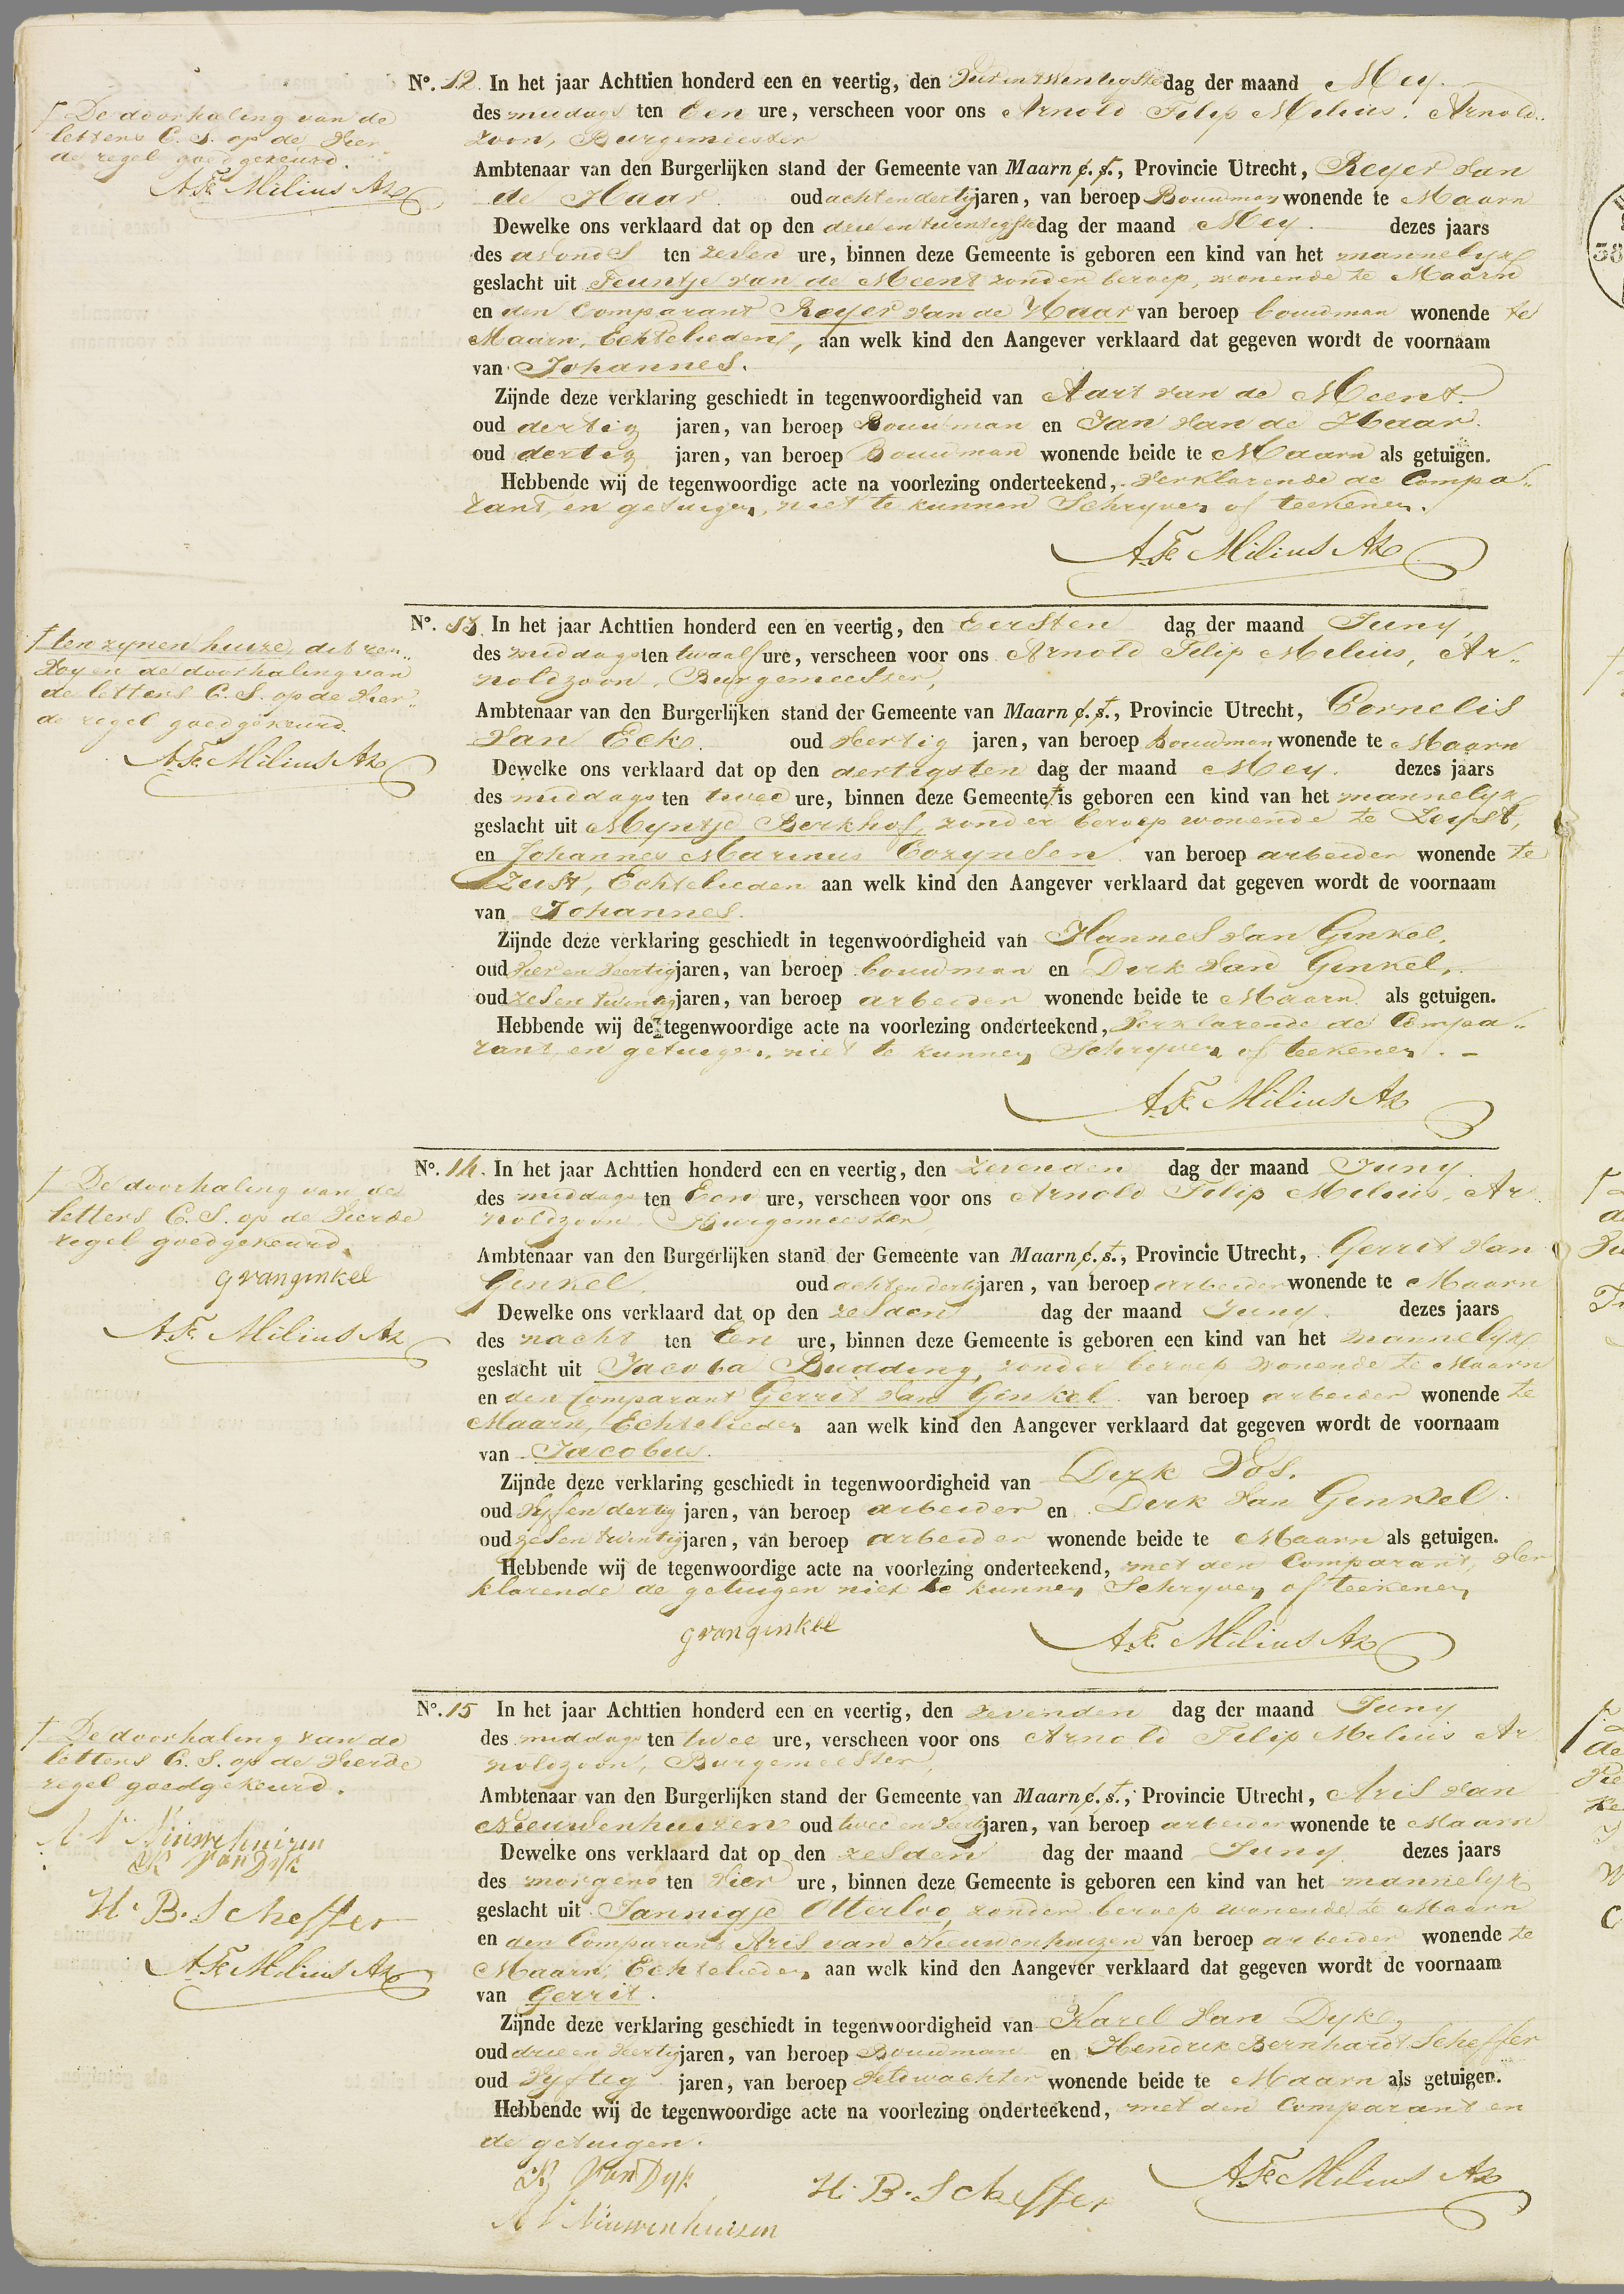 † De doorhaling van de
letters C. S. op de vier
de regel goedgekeurd.
A. F. Milius Az
No. 12. In het jaar Achttien honderd een en veertig, den dag der maand Mey.
des middags ten Een ure, verscheen voor ons Arnold Filip Milius, Arnold..
zoon, Burgemeester
Ambtenaar van den Burgerlijken stand der Gemeente van Maarn c. s. †, Provincie Utrecht, Reyer van
de Haar. oud achtendertig jaren, van beroep Bouwman wonende te Maarn
Dewelke ons verklaard dat op den drie en twintigste dag der maand Mey. dezes jaars
des avonds ten zeven ure, binnen deze Gemeente is geboren een kind van het mannelyk
geslacht uit Teuntje van de Meent zonder beroep, wonende te Maarn
en den Comparant Reyer van de Haar van beroep bouwman wonende te
Maarn, Echtelieden, aan welk kind den Aangever verklaard dat gegeven wordt de voornaam
van Johannes.
Zijnde deze verklaring geschiedt in tegenwoordigheid van Aart van de Meent.
oud dertig jaren, van beroep Bouwman en Jan van de Haar.
oud dertig jaren, van beroep Bouwman wonende beide te Maarn als getuigen.
Hebbende wij de tegenwoordige acte na voorlezing onderteekend, verklarende de Compa..
rant, en getuigen, niet te kunnen Schryven of teekenen.
A. F. Milius Az
† ten zynen huize dit ren..
voy en de doorhaling van
de letters C. S. op de vier..
de regel goedgekeurd.
A. F. Milius Az
No. 13. In het jaar Achttien honderd een en veertig, den Eersten dag der maand Juny,
des middags ten twaalf ure, verscheen voor ons Arnold Filip Milius, Ar..
noldzoon, Burgemeester,
Ambtenaar van den Burgerlijken stand der Gemeente van Maarn c. s. †, Provincie Utrecht, Cornelis
van Eck. oud veertig jaren, van beroep bouwman wonende te Maarn
Dewelke ons verklaard dat op den dertigsten dag der maand Mey. dezes jaars
des middags ten twee ure, binnen deze Gemeente † is geboren een kind van het mannelyk
geslacht uit Myntje Berkhof, zonder beroep wonende te Zeyst,
en Johannes Marinus Cozynsen van beroep arbeider wonende te
Zeist, Echtelieden aan welk kind den Aangever verklaard dat gegeven wordt de voornaam
van Johannes.
Zijnde deze verklaring geschiedt in tegenwoordigheid van Hannes van Ginkel,
oud vier en veertig jaren, van beroep bouwman en Dirk van Ginkel,
oud zes en twintig jaren, van beroep arbeider wonende beide te Maarn als getuigen.
Hebbende wij de tegenwoordige acte na voorlezing onderteekend, verklarende de Compa..
rant, en getuigen, niet te kunnen Schryven of teekenen. -
A. F. Milius Az
† De doorhaling van de
letters C. S. op de vierde
regel goedgekeurd.
g van ginkel
A. F. Milius Az
No. 14. In het jaar Achttien honderd een en veertig, den zevenden dag der maand Juny.
des middags ten Een ure, verscheen voor ons Arnold Filip Milius, Ar
noldzoon, Burgemeester
Ambtenaar van den Burgerlijken stand der Gemeente van Maarn c. s. †, Provincie Utrecht, Gerrit van
Ginkel. oud achtendertig jaren, van beroep arbeider wonende te Maarn
Dewelke ons verklaard dat op den zesden dag der maand Juny. dezes jaars
des nacht ten Een ure, binnen deze Gemeente is geboren een kind van het mannelyk
geslacht uit Jacoba Budding, zonder beroep wonende te Maarn
en den Comparant Gerrit van Ginkel van beroep arbeider wonende te
Maarn, Echtelieden aan welk kind den Aangever verklaard dat gegeven wordt de voornaam
van Jacobus.
Zijnde deze verklaring geschiedt in tegenwoordigheid van Dirk Vos.
oud vyfendertig jaren, van beroep arbeider en Dirk van Ginkel.
oud zesentwintig jaren, van beroep arbeider wonende beide te Maarn als getuigen.
Hebbende wij de tegenwoordige acte na voorlezing onderteekend, met den Comparant, ver
klarende de getuigen niet te kunnen Schryven of teekenen
g van ginkel
A. F. Milius Az
† De doorhaling van de
letters C. S. op de vierde
regel goedgekeurd.
A V Niuwehuizen
K Van Dyk
H. B. Scheffer
A. F. Milius Az
No. 15 In het jaar Achttien honderd een en veertig, den zevenden dag der maand Juny
des middags ten twee ure, verscheen voor ons Arnold Filip Milius Ar
noldzoon, Burgemeester,
Ambtenaar van den Burgerlijken stand der Gemeente van Maarn c. s. †, Provincie Utrecht, Aris van
Nieuwenhuizen oud twee en veertig jaren, van beroep arbeider wonende te Maarn
Dewelke ons verklaard dat op den zesden dag der maand Juny. dezes jaars
des morgens ten vier ure, binnen deze Gemeente is geboren een kind van het mannelyk
geslacht uit Jannigje Otterloo, zonder beroep wonende te Maarn
en den Comparant Aris van Nieuwenhuizen van beroep arbeider wonende te
Maarn, Echtelieden aan welk kind den Aangever verklaard dat gegeven wordt de voornaam
van Gerrit.
Zijnde deze verklaring geschiedt in tegenwoordigheid van Karel van Dyk,
oud drie en veertig jaren, van beroep Bouwman en Hendrik Bernhardt Scheffer
oud vyftig jaren, van beroep veldwachter wonende beide te Maarn als getuigen.
Hebbende wij de tegenwoordige acte na voorlezing onderteekend, met den Comparant en
de getuigen.
K Van Dyk
H. B. Scheffer
A. F. Milius Az
A V Niuwenhuizen